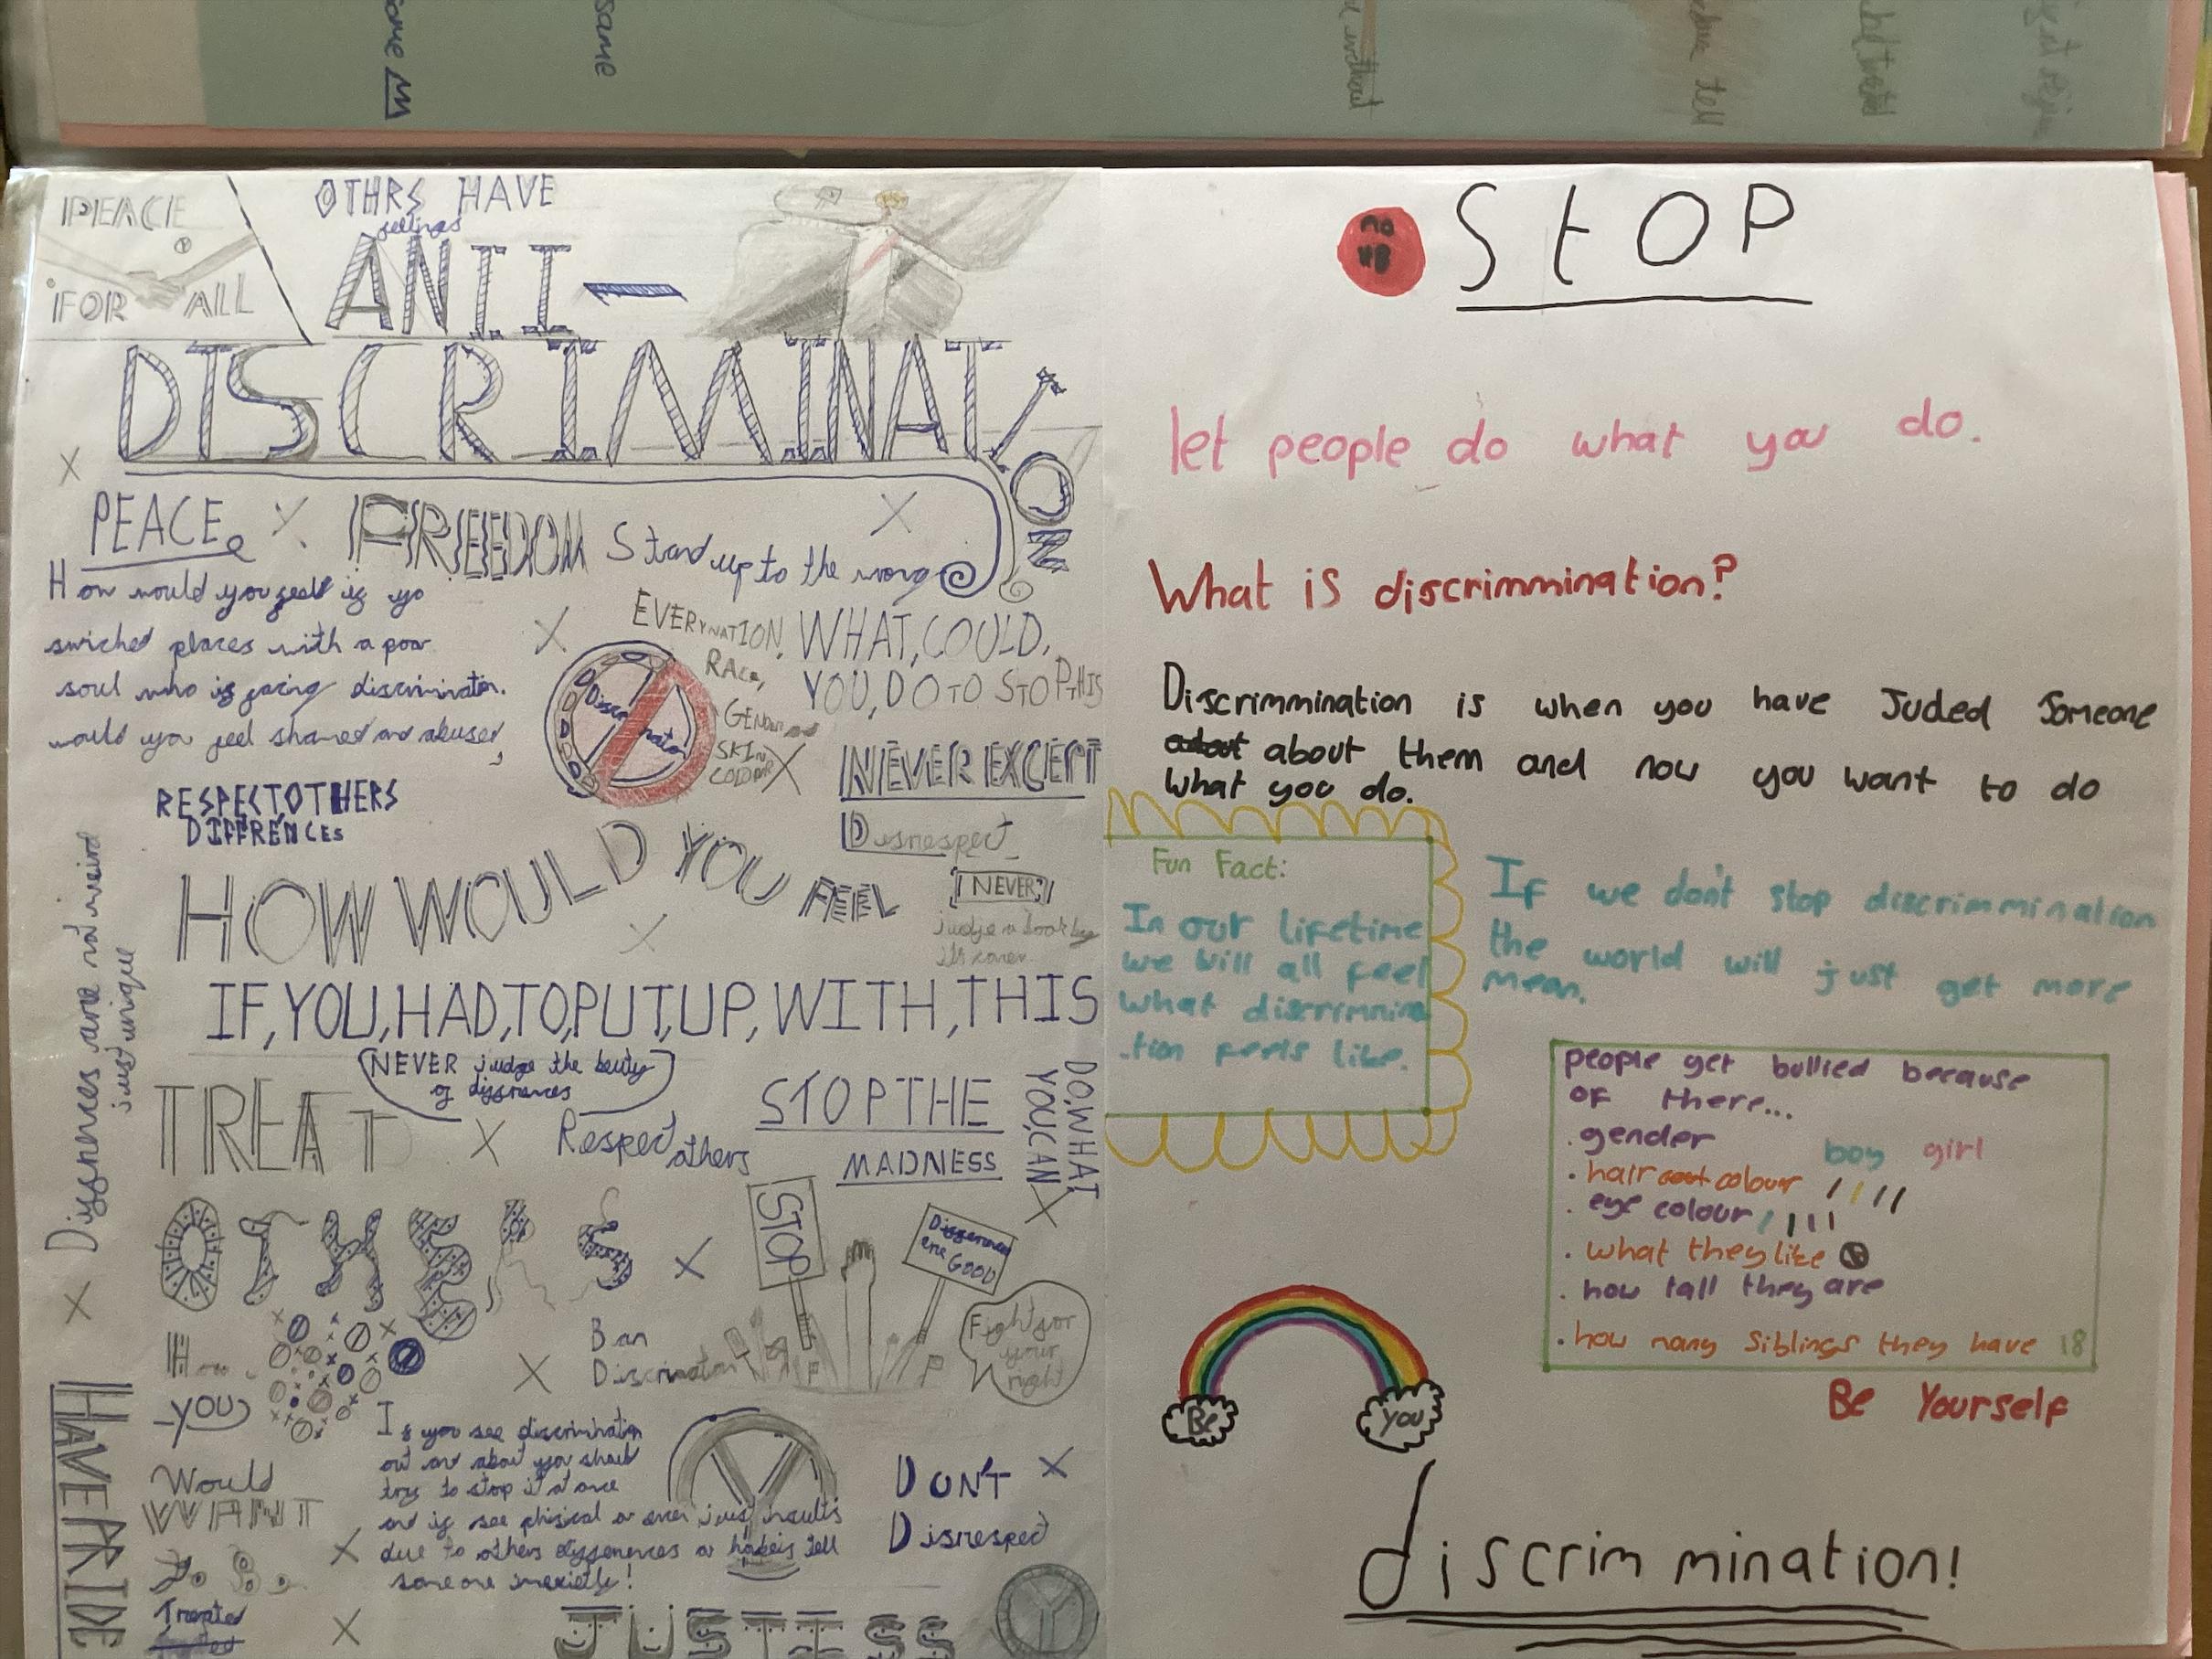 same
tell
PEACE
FOR ALL
OTHRS HAVE
feelings
ANTI-
DISCRIMINATION
PEACE
FREEDOM
Stand up to the wrong
How would you feel if yo
swiched places with a poor
soul who is facing discrimination.
would you feel shamed and abused,
EVERY NATION,
RACE,
GENDER and
SKIN
COLOUR
WHAT, COULD,
YOU, DO TO STOP THIS
NEVER EXCEPT
Disrespect
RESPECT OTHERS
DIFFRENCES
HOW WOULD YOU FEEL
NEVER
judge a book by
its cover.
IF, YOU, HAD, TO, PUT, UP, WITH, THIS
Diffrnces are not weird
just unique
NEVER judge the beuty
of diffrences
TREAT
Respect others
STOP THE
MADNESS
DO, WHAT,
YOU, CAN
OTHER'S
STOP
are GOOD
Fight for
your
right
Ban
Discrimination
you
Would
WANT
Treated
HAVE PRIDE
If you see discrimination
out and about you should
try to stop it at once
and if see phisical or even just insults
due to others diffrences or
tell
someone
DON'T
Disrespect
JUSTISS
no
StOP
let people do what you do.
What is discrimmination?
Discrimmination is when you have Juded Someone
about them and now you want to do
what you do.
Fun Fact:
In our lifetime
we will all feel
what discrimmina
-tion feels like.
If we don't stop discrimmination
the world will just get more
mean.
people get bullied because
of there...
. gender boy girl
. hair colour
. eye colour
. what they like
. how tall they are
. how many siblings they have 18
Be Yourself
Be You
discrimmination!